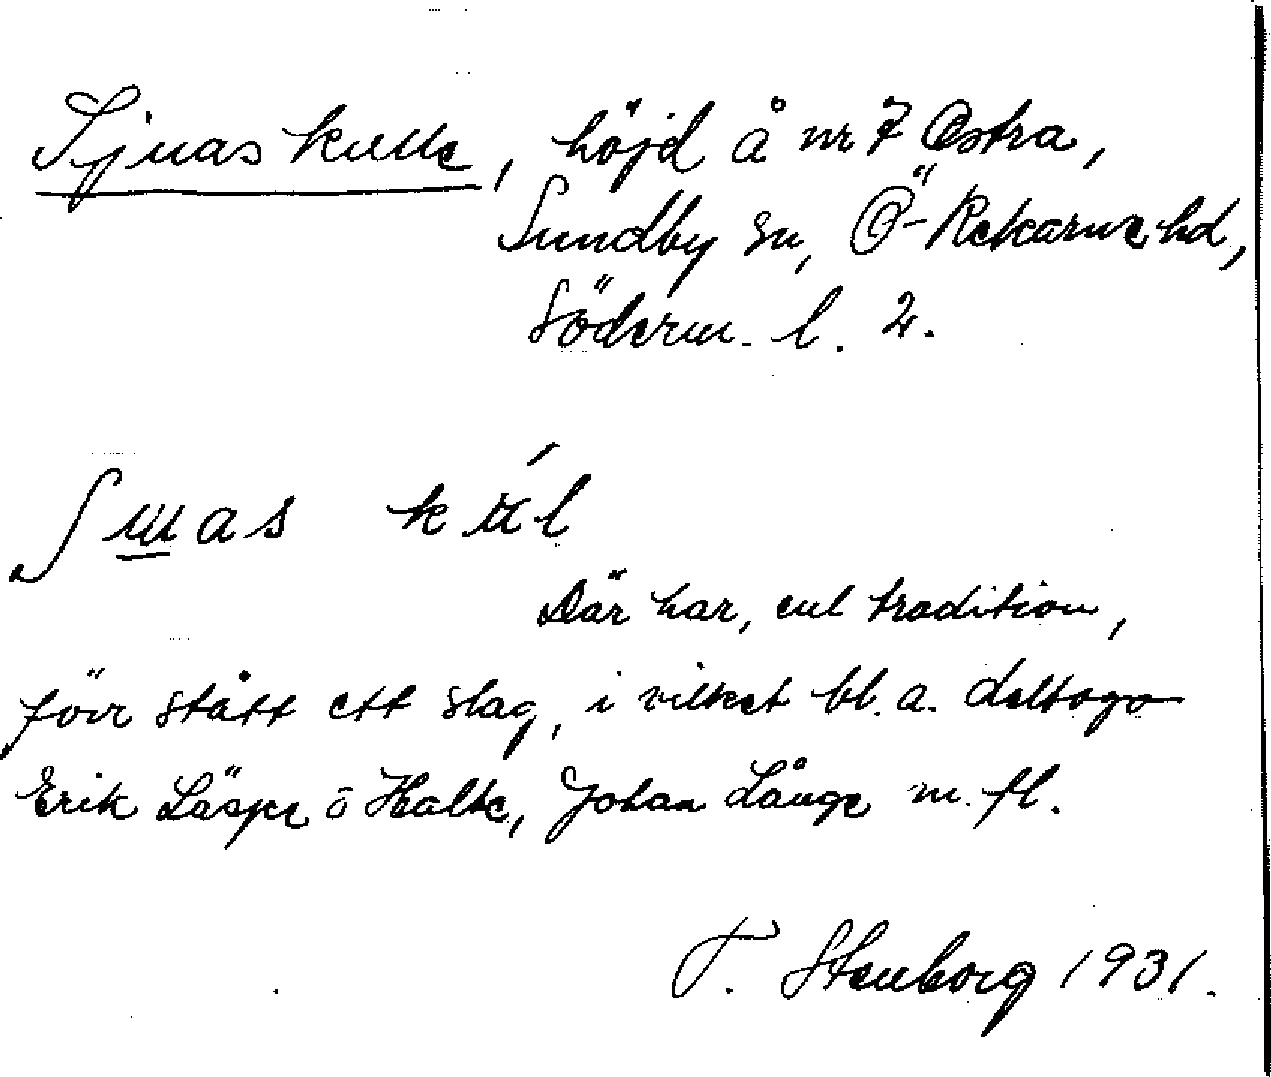 Sjuas kulle, höjd å nr 7 Östra,
Sundby sn, Ö-Rekarne hd,
Söderm. l. 2.
ʃɯas kɯ́l
Där har, enl tradition,
förr stått ett slag, i vilket bl. a. deltogo
Erik Läspe o Halte, Johan Långe m. fl.
T. Stenborg 1931.